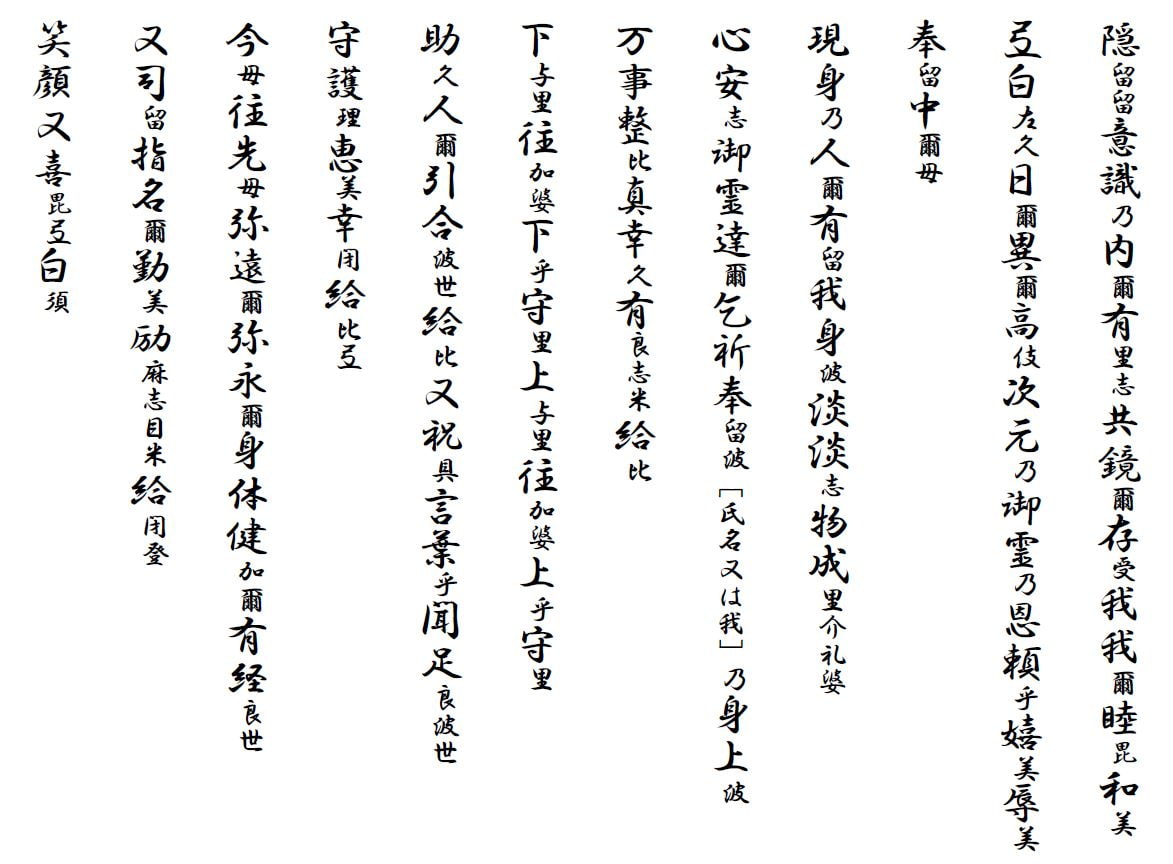 隠留留意識乃内爾有里志共鏡爾存受我我爾睦毘和美
弖白左久日爾異爾高伎次元乃御霊乃恩頼乎嬉美辱美
奉留中爾毋
現身乃人爾有留我身波淡淡志物成里介礼婆
心安志御霊達爾乞祈奉留波［氏名又は我］乃身上波
万事整比真幸久有良志米給比
下与里往加婆下乎守里上与里往加婆上乎守里
助久人爾引合波世給比又祝具言葉乎聞足良波世
守護理恵美幸閉給比弖
今毋往先毋弥遠爾弥永爾身体健加爾有経良世
又司留指名爾勤美励麻志目米給閉登
笑顔又喜毘弖白須